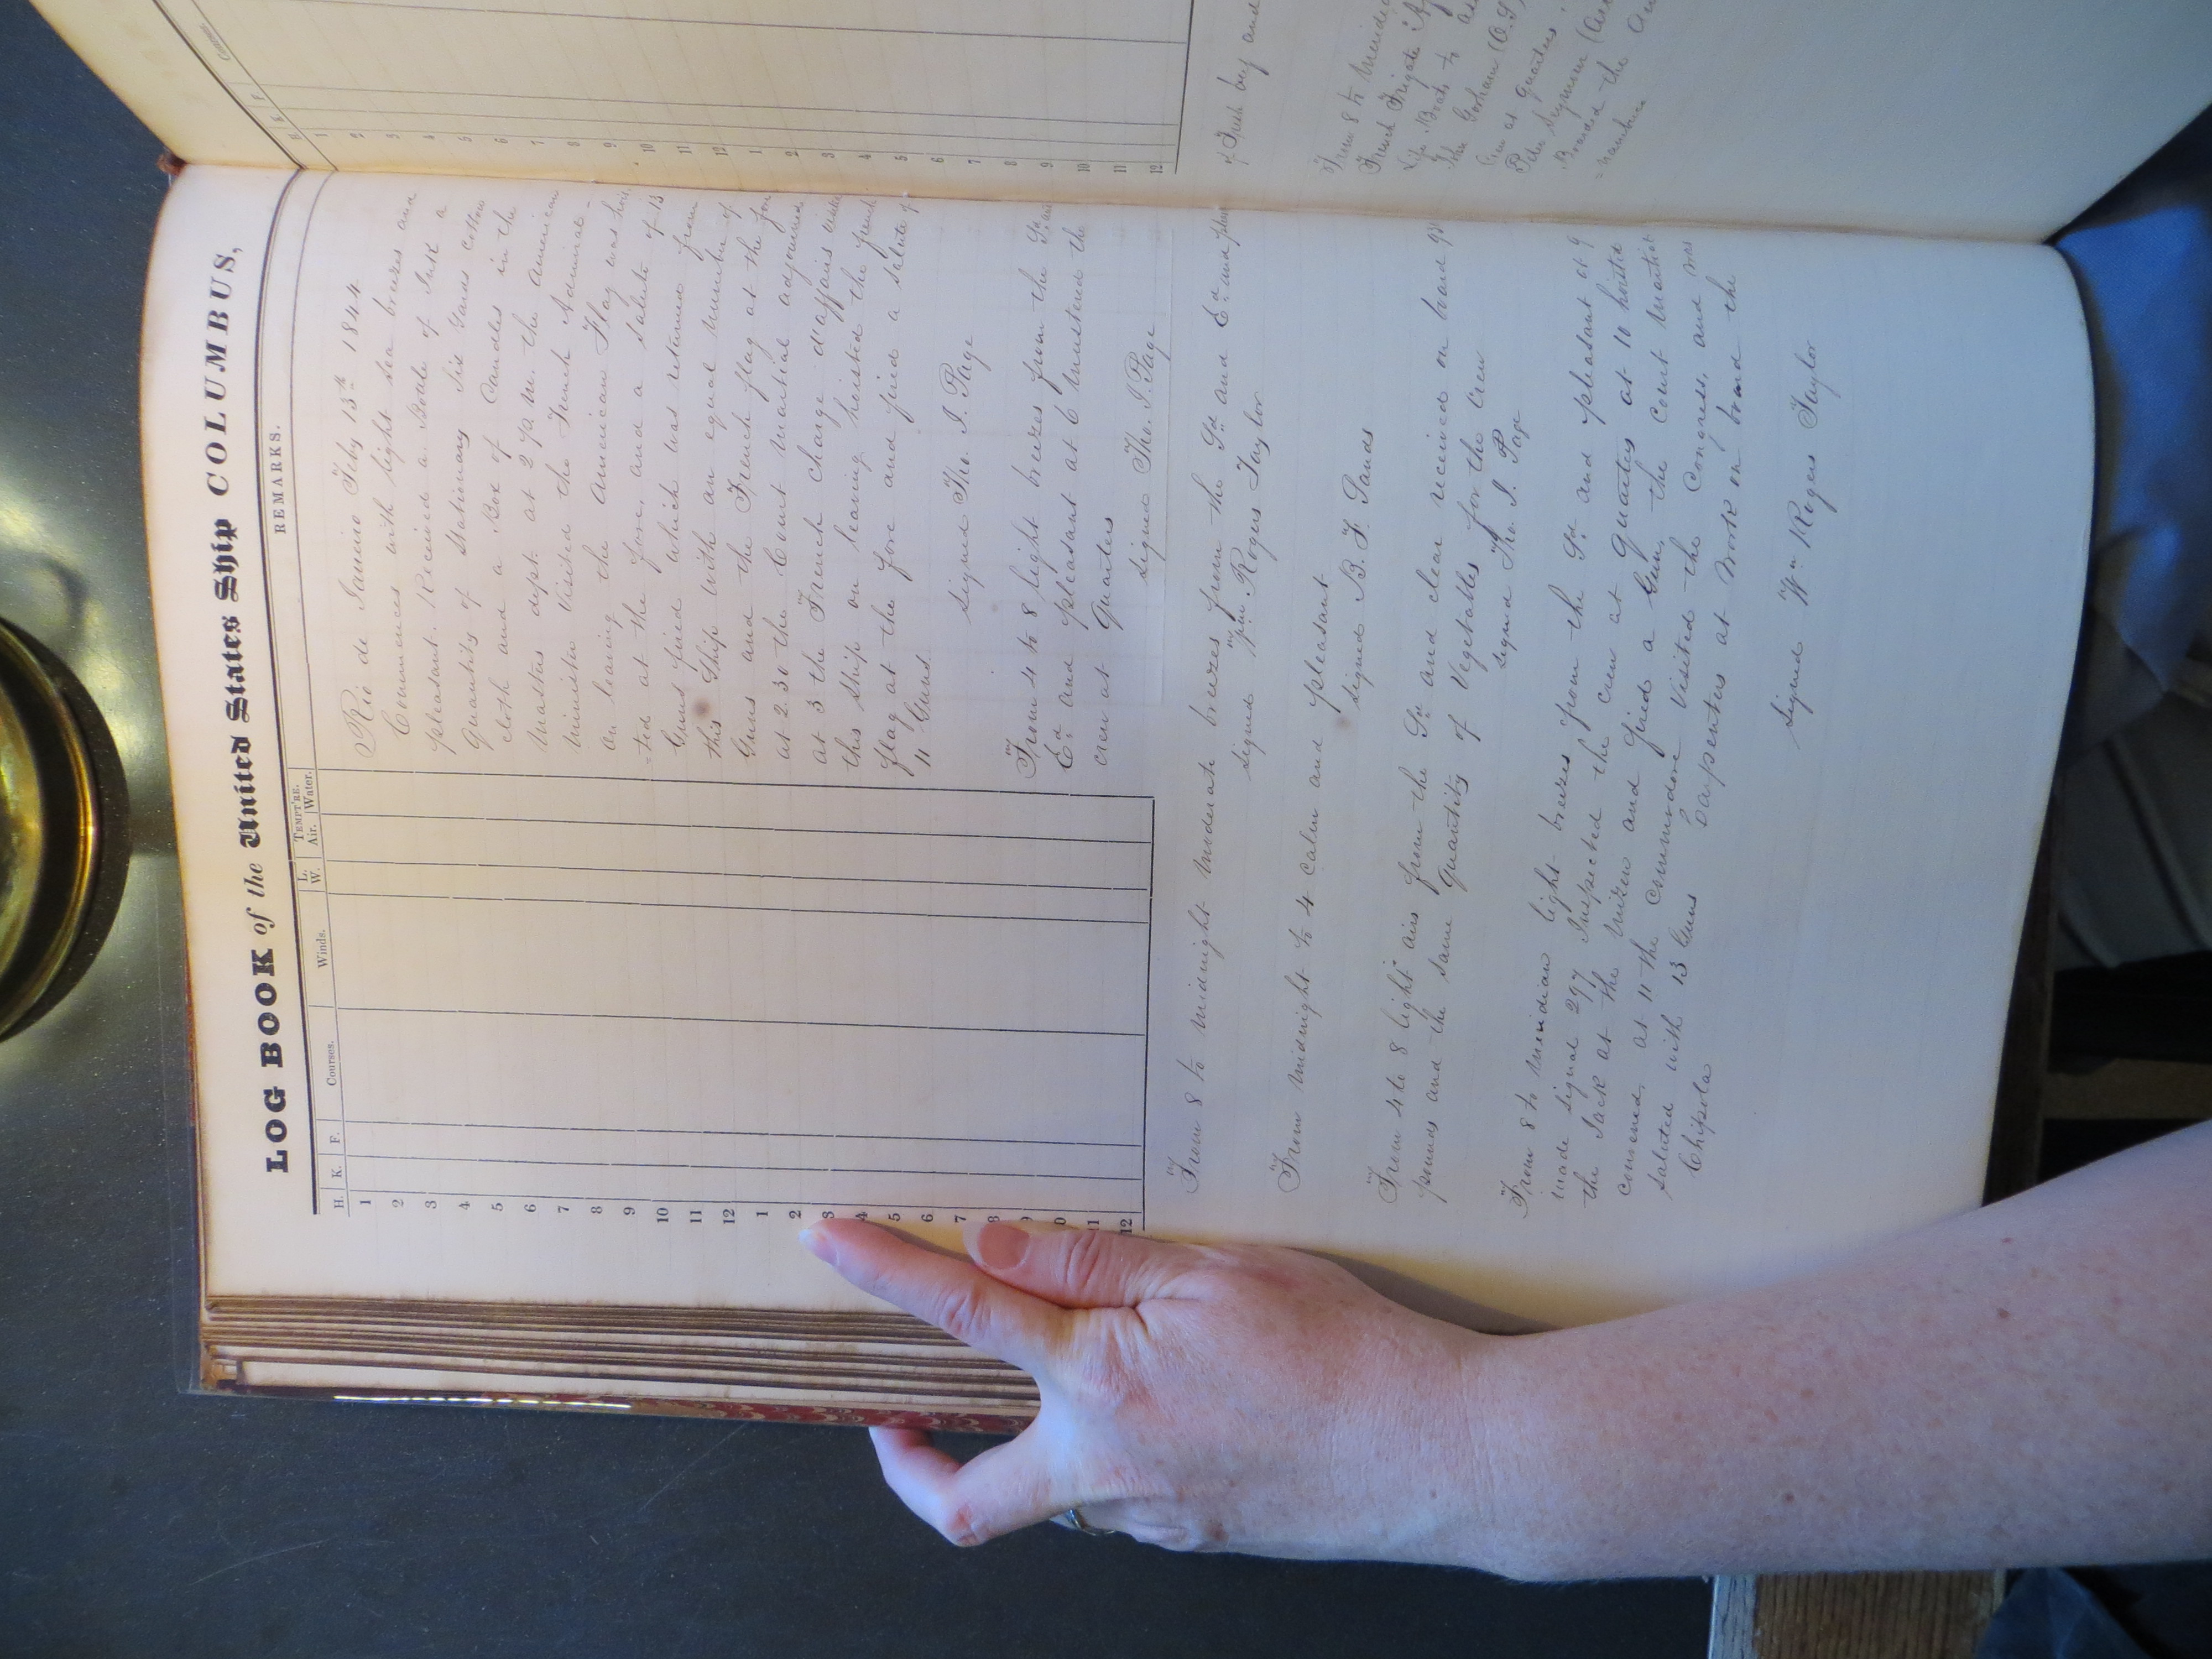 LOG BOOK of the United States Ship COLUMBUS,
H. K. F. Courses. Winds. L. W. TEMPT'RE. Air. Water. REMARKS.
1
2
3
4
5
6
7
8
9
10
11
12
1
2
3
4
5
6
7
8
9
10
11
12
Rio de Janeiro Feby 13th 1844
Commences with light sea breezes and
pleasant. Received a Bottle of Ink a
quantity of Stationary six yards cotton
cloth and a Box of Candles in the
Masters dept. at 2 P.M. the American
Minister Visited the French Admiral -
on leaving the American Flag was hois
=ted at the fore, and a salute of 13
Guns fired which was returned from
this Ship with an equal number of
Guns and the French flag at the fore
at 2.30 the Court Martial adjourned
at 3 the French Charge d'affairs visited
this Ship on leaving hoisted the french
flag at the fore and fired a salute of
11 Guns
signed Tho. J. Page
From 4 to 8 light breezes from the Sd and
Ed and pleasant at 6 mustered the
crew at Quarters
signed Tho. J. Page
From 8 to midnight moderate breezes from the Sd and Ed and
signed Wm Rogers Taylor
From midnight to 4 calm and pleasant
signed B. F. Sands
From 4 to 8 light airs from the Sd and clear received on board
pounds and the same quantity of Vegetables for the Crew
signed Tho. J. Page
From 8 to meridian light breezes from the Sd and pleasant at 9
made signal 297 Inspected the crew at Quarters at 10 hoisted
the Jack at the mizen and fired a Gun, the Court Martial
convened. at 11 the Commodore Visited the Congress, and was
saluted with 13 Guns Carpenters at work on board the
Chipola
signed Wm Rogers Taylor
H. K. F. Courses.
1
2
3
4
5
6
7
8
9
10
11
12
1
2
3
4
5
6
7
8
9
10
11
12
Fresh and
From 8 to Meridian
French Frigate
Life Boats to
John Gorham (O.S)
Crew at Quarters
Peter Seymour
Boarded the